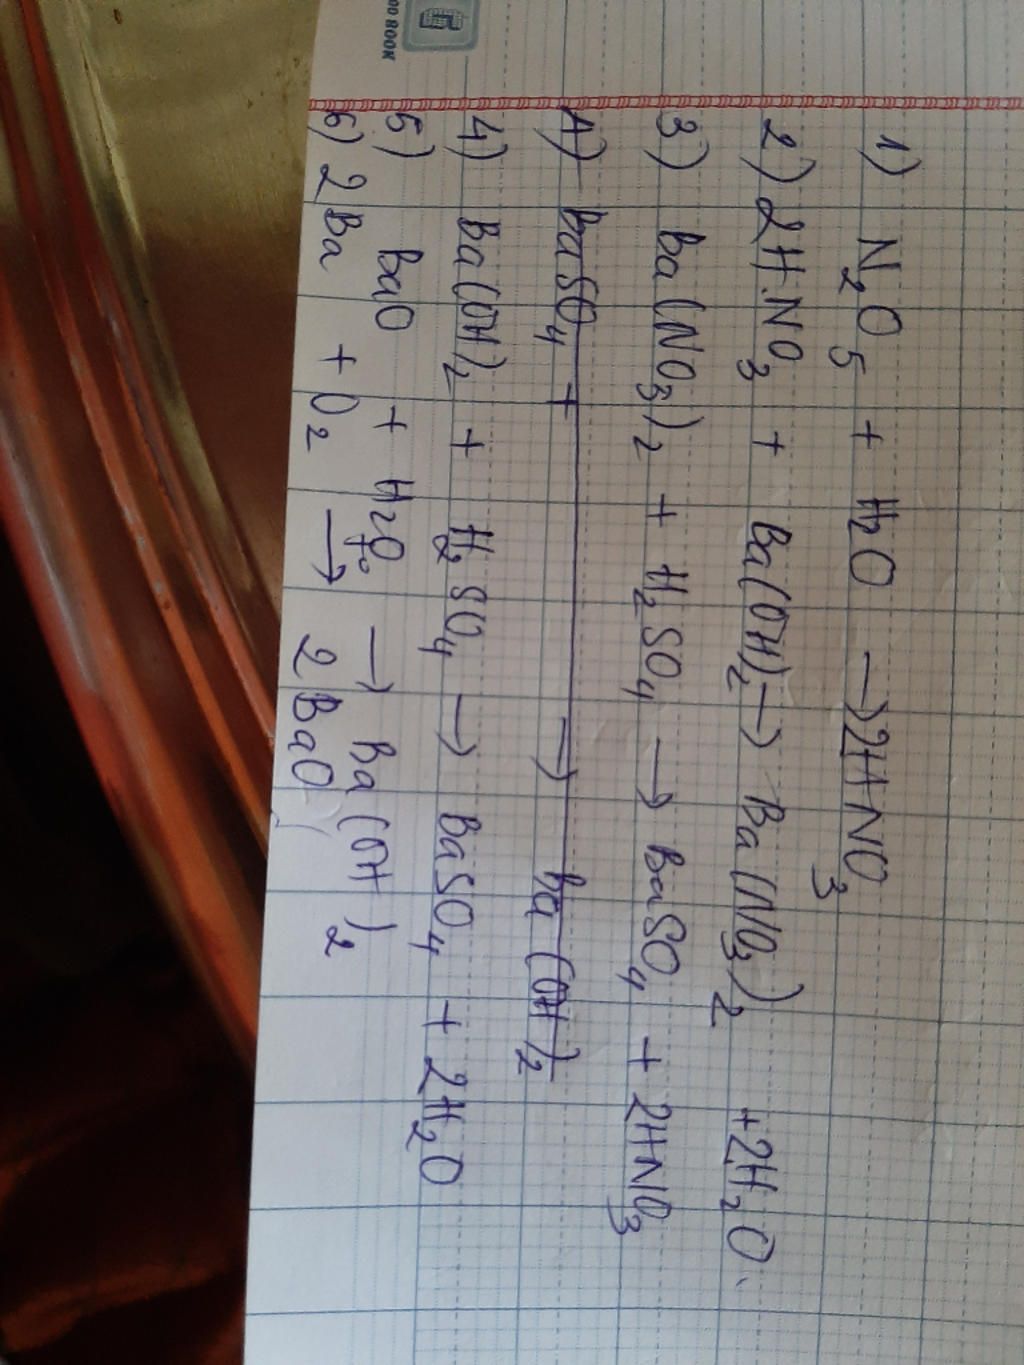 OD BOOK
1) N₂O₅ + H₂O → 2HNO₃
2) 2HNO₃ + Ba(OH)₂ → Ba(NO₃)₂ + 2H₂O.
3) Ba(NO₃)₂ + H₂SO₄ → BaSO₄ + 2HNO₃
4) BaSO₄ + → Ba(OH)₂
4) Ba(OH)₂ + H₂SO₄ → BaSO₄ + 2H₂O
5) BaO + H₂O → Ba(OH)₂
6) 2Ba + O₂ t°→ 2BaO